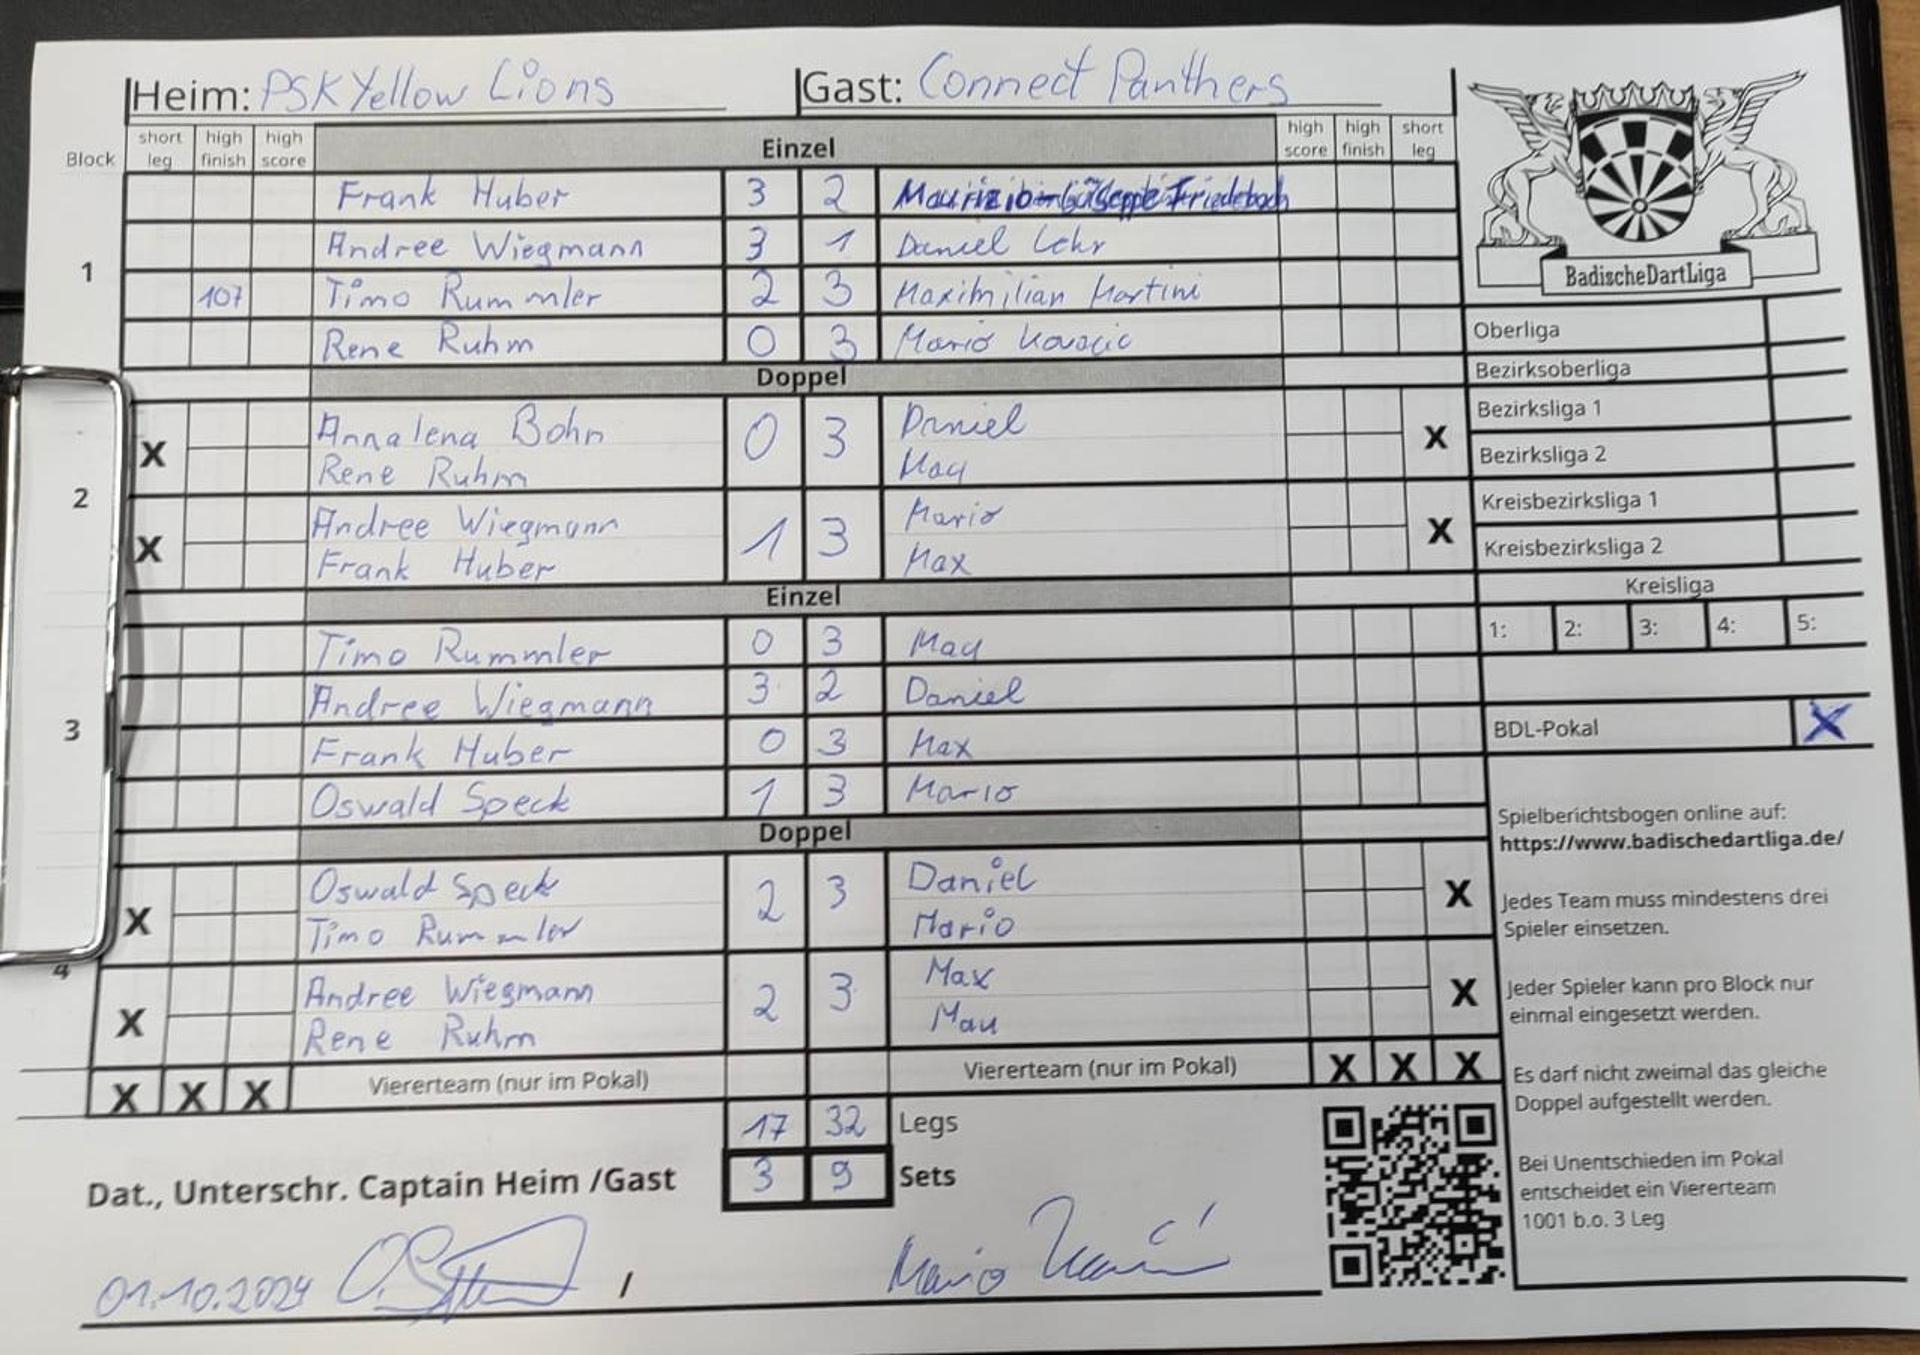 Heim: PSK Yellow Lions Gast: Connect Panthers
Block short leg high finish high score Einzel high score high finish short leg
1
Frank Huber 3 2 Friedebach
Andree Wiegmann 3 1 Daniel Lehr
107 Timo Rummler 2 3 Maximilian Martini
Rene Ruhm 0 3 Mario Kovacic
Doppel
2
X Annalena Bohn 0 3 Daniel X
Rene Ruhm Mau
X Andree Wiegmann 1 3 Mario X
Frank Huber Max
Einzel
3
Timo Rummler 0 3 Mau
Andree Wiegmann 3 2 Daniel
Frank Huber 0 3 Max
Oswald Speck 1 3 Mario
Doppel
4
X Oswald Speck 2 3 Daniel X
Timo Rummler Mario
X Andree Wiegmann 2 3 Max X
Rene Ruhm Mau
X X X Viererteam (nur im Pokal) Viererteam (nur im Pokal) X X X
17 32 Legs
3 9 Sets
Dat., Unterschr. Captain Heim /Gast
01.10.2024 / Mario
BadischeDartLiga
Oberliga
Bezirksoberliga
Bezirksliga 1
Bezirksliga 2
Kreisbezirksliga 1
Kreisbezirksliga 2
Kreisliga
1: 2: 3: 4: 5:
BDL-Pokal X
Spielberichtsbogen online auf:
https://www.badischedartliga.de/
Jedes Team muss mindestens drei
Spieler einsetzen.
Jeder Spieler kann pro Block nur
einmal eingesetzt werden.
Es darf nicht zweimal das gleiche
Doppel aufgestellt werden.
Bei Unentschieden im Pokal
entscheidet ein Viererteam
1001 b.o. 3 Leg